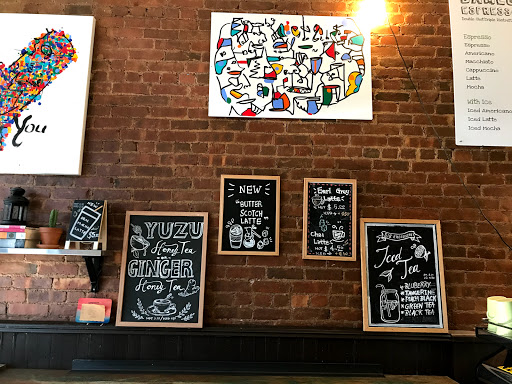 You
ESPRESSO
Espresso
Espresso
Americano
Macchiato
Cappuccino
Latte
Mocha
With Ice
Iced Americano
Iced Latte
Iced Mocha
YUZU
Honey Tea
GINGER
Honey Tea
NEW
BUTTER
SCOTCH
LATTE
Earl Grey
Latte
Chai
Latte
Iced
Tea
BLUEBERRY
TANGERINE
PEACH BLACK
GREEN TEA
BLACK TEA